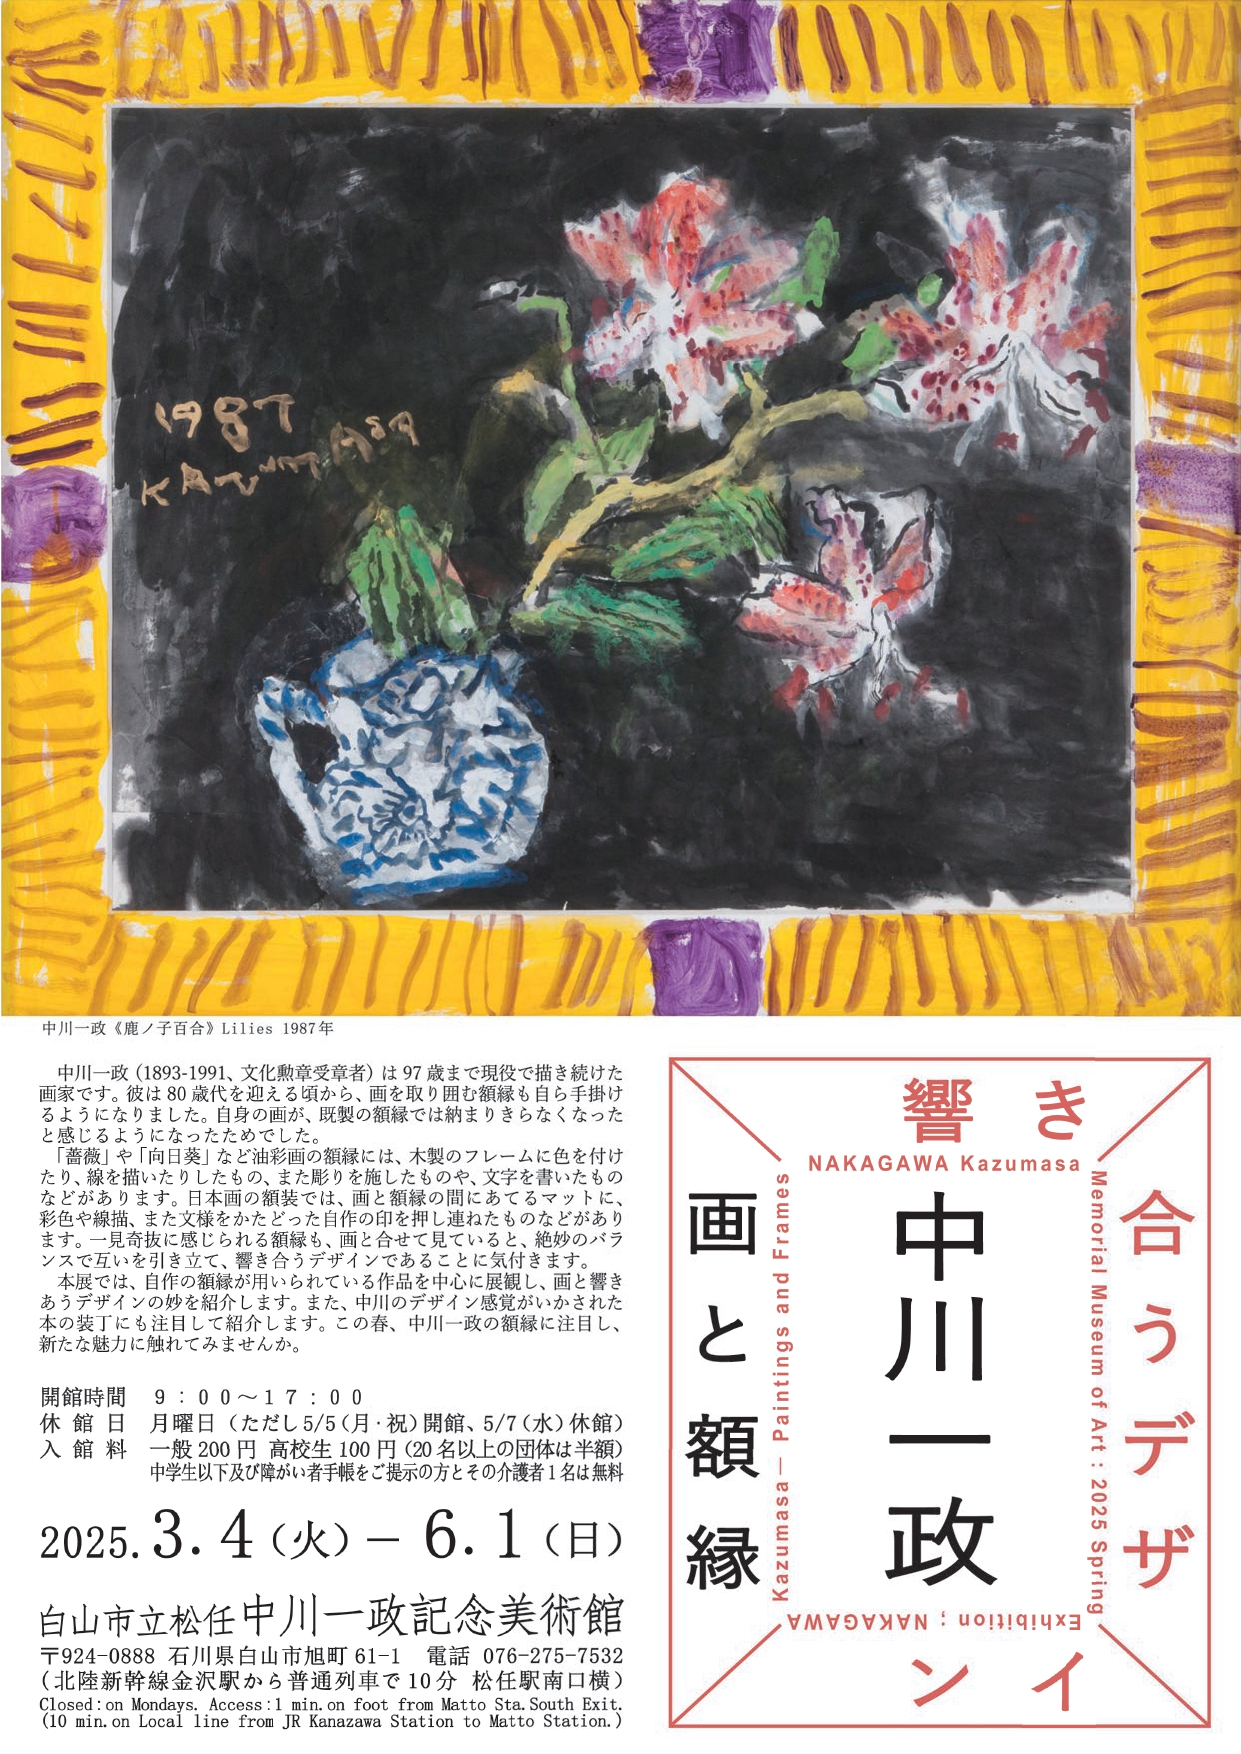 1987
KAZUMASA
中川一政《鹿ノ子百合》Lilies 1987年
中川一政（1893-1991、文化勲章受章者）は97歳まで現役で描き続けた
画家です。彼は80歳代を迎える頃から、画を取り囲む額縁も自ら手掛け
るようになりました。自身の画が、既製の額縁では納まりきらなくなった
と感じるようになったためでした。
「薔薇」や「向日葵」など油彩画の額縁には、木製のフレームに色を付け
たり、線を描いたりしたもの、また彫りを施したものや、文字を書いたもの
などがあります。日本画の額装では、画と額縁の間にあてるマットに、
彩色や線描、また文様をかたどった自作の印を押し連ねたものなどがあり
ます。一見奇抜に感じられる額縁も、画と合せて見ていると、絶妙のバラ
ンスで互いを引き立て、響き合うデザインであることに気付きます。
本展では、自作の額縁が用いられている作品を中心に展観し、画と響き
あうデザインの妙を紹介します。また、中川のデザイン感覚がいかされた
本の装丁にも注目して紹介します。この春、中川一政の額縁に注目し、
新たな魅力に触れてみませんか。
開館時間 9：00～17：00
休館日 月曜日（ただし5/5（月・祝）開館、5/7（水）休館）
入館料 一般200円 高校生100円（20名以上の団体は半額）
中学生以下及び障がい者手帳をご提示の方とその介護者1名は無料
2025.3.4（火）－6.1（日）
白山市立松任中川一政記念美術館
〒924-0888 石川県白山市旭町61-1 電話 076-275-7532
（北陸新幹線金沢駅から普通列車で10分 松任駅南口横）
Closed:on Mondays. Access:1 min.on foot from Matto Sta.South Exit.
(10 min.on Local line from JR Kanazawa Station to Matto Station.)
響き
合うデザ
イン
中川一政
画と額縁
NAKAGAWA Kazumasa
Memorial Museum of Art : 2025 Spring
Exhibition ; NAKAGAWA
Kazumasa — Paintings and Frames